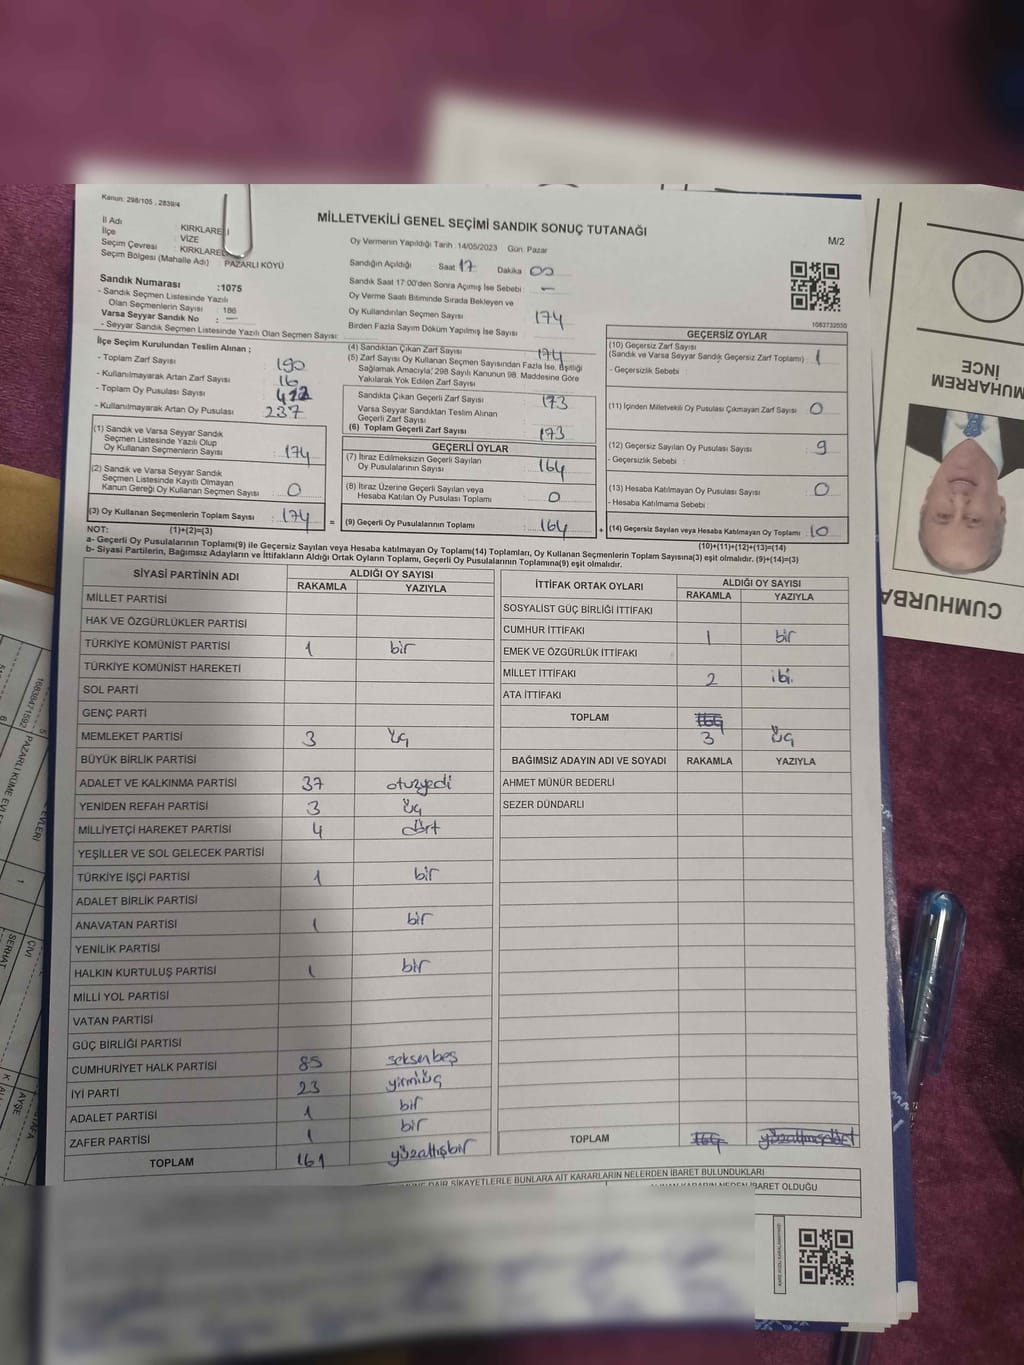 Kanun: 298/105 , 2839/4
MİLLETVEKİLİ GENEL SEÇİMİ SANDIK SONUÇ TUTANAĞI
M/2
İl Adı : KIRKLARELİ
İlçe : VİZE
Seçim Çevresi : KIRKLARELİ
Seçim Bölgesi (Mahalle Adı) : PAZARLI KÖYÜ
Oy Vermenin Yapıldığı Tarih :14/05/2023 Gün: Pazar
Sandığın Açıldığı Saat 17 Dakika 00
Sandık Saat 17:00'den Sonra Açımış İse Sebebi : -
Oy Verme Saati Bitiminde Sırada Bekleyen ve
Oy Kullandırılan Seçmen Sayısı 174
Birden Fazla Sayım Döküm Yapılmış İse Sayısı
Sandık Numarası :1075
- Sandık Seçmen Listesinde Yazılı
Olan Seçmenlerin Sayısı : 186
Varsa Seyyar Sandık No : -
- Seyyar Sandık Seçmen Listesinde Yazılı Olan Seçmen Sayısı:
1083732050
İlçe Seçim Kurulundan Teslim Alınan ;
- Toplam Zarf Sayısı : 190
- Kullanılmayarak Artan Zarf Sayısı : 16
- Toplam Oy Pusulası Sayısı :
- Kullanılmayarak Artan Oy Pusulası : 237
(1) Sandık ve Varsa Seyyar Sandık
Seçmen Listesinde Yazılı Olup
Oy Kullanan Seçmenlerin Sayısı : 174
(2) Sandık ve Varsa Seyyar Sandık
Seçmen Listesinde Kayıtlı Olmayan
Kanun Gereği Oy Kullanan Seçmen Sayısı : 0
(3) Oy Kullanan Seçmenlerin Toplam Sayısı : 174
(1)+(2)=(3)
(4) Sandıktan Çıkan Zarf Sayısı 174
(5) Zarf Sayısı Oy Kullanan Seçmen Sayısından Fazla İse, Eşitliği
Sağlamak Amacıyla; 298 Sayılı Kanunun 98. Maddesine Göre
Yakılarak Yok Edilen Zarf Sayısı
Sandıkta Çıkan Geçerli Zarf Sayısı 173
Varsa Seyyar Sandıktan Teslim Alınan
Geçerli Zarf Sayısı
(6) Toplam Geçerli Zarf Sayısı 173
GEÇERLİ OYLAR
(7) İtiraz Edilmeksizin Geçerli Sayılan
Oy Pusulalarının Sayısı : 164
(8) İtiraz Üzerine Geçerli Sayılan veya
Hesaba Katılan Oy Pusulası Toplamı : 0
= (9) Geçerli Oy Pusulalarının Toplamı : 164
GEÇERSİZ OYLAR
(10) Geçersiz Zarf Sayısı
(Sandık ve Varsa Seyyar Sandık Geçersiz Zarf Toplamı) : 1
- Geçersizlik Sebebi :
(11) İçinden Milletvekili Oy Pusulası Çıkmayan Zarf Sayısı : 0
(12) Geçersiz Sayılan Oy Pusulası Sayısı : 9
- Geçersizlik Sebebi :
(13) Hesaba Katılmayan Oy Pusulası Sayısı : 0
- Hesaba Katılmama Sebebi :
+ (14) Geçersiz Sayılan veya Hesaba Katılmayan Oy Toplamı : 10
(10)+(11)+(12)+(13)=(14)
NOT:
a- Geçerli Oy Pusulalarının Toplamı(9) ile Geçersiz Sayılan veya Hesaba katılmayan Oy Toplamı(14) Toplamları, Oy Kullanan Seçmenlerin Toplam Sayısına(3) eşit olmalıdır. (9)+(14)=(3)
b- Siyasi Partilerin, Bağımsız Adayların ve İttifakların Aldığı Ortak Oyların Toplamı, Geçerli Oy Pusulalarının Toplamına(9) eşit olmalıdır.
SİYASİ PARTİNİN ADI ALDIĞI OY SAYISI
RAKAMLA YAZIYLA
MİLLET PARTİSİ
HAK VE ÖZGÜRLÜKLER PARTİSİ
TÜRKİYE KOMÜNİST PARTİSİ 1 bir
TÜRKİYE KOMÜNİST HAREKETİ
SOL PARTİ
GENÇ PARTİ
MEMLEKET PARTİSİ 3 üç
BÜYÜK BİRLİK PARTİSİ
ADALET VE KALKINMA PARTİSİ 37 otuzyedi
YENİDEN REFAH PARTİSİ 3 üç
MİLLİYETÇİ HAREKET PARTİSİ 4 dört
YEŞİLLER VE SOL GELECEK PARTİSİ
TÜRKİYE İŞÇİ PARTİSİ 1 bir
ADALET BİRLİK PARTİSİ
ANAVATAN PARTİSİ 1 bir
YENİLİK PARTİSİ
HALKIN KURTULUŞ PARTİSİ 1 bir
MİLLİ YOL PARTİSİ
VATAN PARTİSİ
GÜÇ BİRLİĞİ PARTİSİ
CUMHURİYET HALK PARTİSİ 85 seksenbeş
İYİ PARTİ 23 yirmiüç
ADALET PARTİSİ 1 bir
ZAFER PARTİSİ 1 bir
TOPLAM 161 yüzaltmışbir
İTTİFAK ORTAK OYLARI ALDIĞI OY SAYISI
RAKAMLA YAZIYLA
SOSYALİST GÜÇ BİRLİĞİ İTTİFAKI
CUMHUR İTTİFAKI 1 bir
EMEK VE ÖZGÜRLÜK İTTİFAKI
MİLLET İTTİFAKI 2 iki
ATA İTTİFAKI
TOPLAM 164
3 üç
BAĞIMSIZ ADAYIN ADI VE SOYADI RAKAMLA YAZIYLA
AHMET MÜNÜR BEDERLİ
SEZER DÜNDARLI
TOPLAM 164 yüzaltmışdört
DAİR ŞİKAYETLERLE BUNLARA AİT KARARLARIN NELERDEN İBARET BULUNDUKLARI
MUHARREM
İNCE
CUMHURBA
1683847/592
PAZARLI KÜME EVLERİ
EVLERİ
1
ÇİVİ
SERHAT
AYŞE